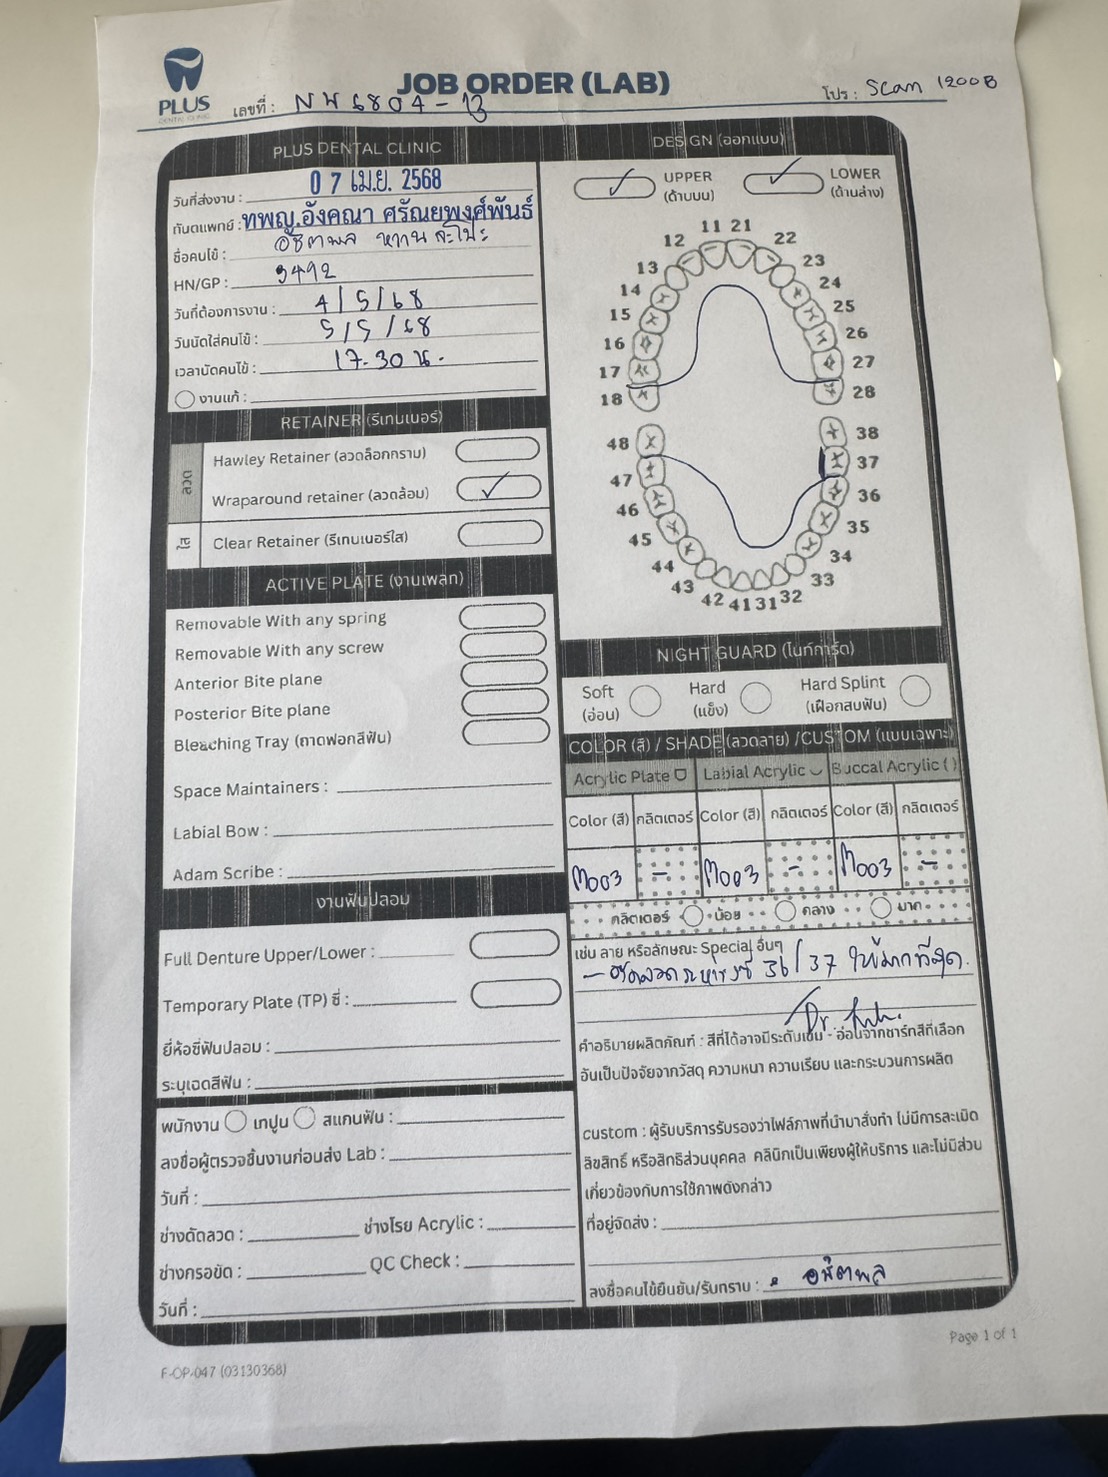 PLUS
DENTAL CLINIC
JOB ORDER (LAB)
เลขที่ : NW6804-13
โปร : Scan 1200B
PLUS DENTAL CLINIC
วันที่ส่งงาน : 07 เม.ย. 2568
ทันตแพทย์ : ทพญ.อังคณา ศรัณยพงศ์พันธ์
ชื่อคนไข้ :
HN/GP : 3492
วันที่ต้องการงาน : 4/5/68
วันนัดใส่คนไข้ : 5/5/68
เวลานัดคนไข้ : 17.30 น.
งานแก้ :
RETAINER (รีเทนเนอร์)
ลวด
Hawley Retainer (ลวดล็อกกราม)
Wraparound retainer (ลวดล้อม)
ใส
Clear Retainer (รีเทนเนอร์ใส)
ACTIVE PLATE (งานเพลท)
Removable With any spring
Removable With any screw
Anterior Bite plane
Posterior Bite plane
Bleaching Tray (ถาดฟอกสีฟัน)
Space Maintainers :
Labial Bow :
Adam Scribe :
งานฟันปลอม
Full Denture Upper/Lower :
Temporary Plate (TP) ซี่ :
ยี่ห้อซี่ฟันปลอม :
ระบุเฉดสีฟัน :
พนักงาน เทปูน สแกนฟัน :
ลงชื่อผู้ตรวจชิ้นงานก่อนส่ง Lab :
วันที่ :
ช่างดัดลวด : ช่างโรย Acrylic :
ช่างกรอขัด : QC Check :
วันที่ :
DESIGN (ออกแบบ)
UPPER (ด้านบน)
LOWER (ด้านล่าง)
11 21
12 22
13 23
14 24
15 25
16 26
17 27
18 28
48 38
47 37
46 36
45 35
44 34
43 33
42 41 31 32
NIGHT GUARD (ไนท์การ์ด)
Soft (อ่อน)
Hard (แข็ง)
Hard Splint (เฝือกสบฟัน)
COLOR (สี) / SHADE (ลวดลาย) /CUSTOM (แบบเฉพาะ)
Acrylic Plate Labial Acrylic Buccal Acrylic ( )
Color (สี) กลิตเตอร์ Color (สี) กลิตเตอร์ Color (สี) กลิตเตอร์
M003 - M003 - M003 -
กลิตเตอร์ น้อย กลาง มาก
เช่น ลาย หรือลักษณะ Special อื่นๆ
- ดัดลวดระหว่างซี่ 36/37 ให้มากที่สุด.
Dr.
คำอธิบายผลิตภัณฑ์ : สีที่ได้อาจมีระดับเข้ม - อ่อนจากชาร์ทสีที่เลือก
อันเป็นปัจจัยจากวัสดุ ความหนา ความเรียบ และกระบวนการผลิต
custom : ผู้รับบริการรับรองว่าไฟล์ภาพที่นำมาสั่งทำ ไม่มีการละเมิด
ลิขสิทธิ์ หรือสิทธิส่วนบุคคล คลินิกเป็นเพียงผู้ให้บริการ และไม่มีส่วน
เกี่ยวข้องกับการใช้ภาพดังกล่าว
ที่อยู่จัดส่ง :
ลงชื่อคนไข้ยืนยัน/รับทราบ :
F-OP-047 (03130368)
Page 1 of 1